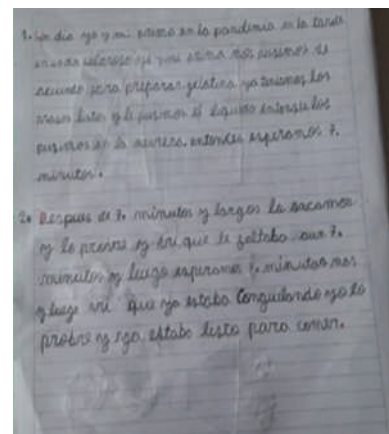 1. Un dia yo y mi prima en la pandemia en la tarde
yo y mi prima nos pusimos de
acuerdo para preparar gelatina ya teniamos los
vasos listos y le pusimos el liquido entonces los
pusimos en la nevera, entonces esperamos 7.
minutos.
2. Despues de 7. minutos y largos la sacamos
y la probre y vi que le faltaba aun 7.
minutos y luego esperamos 7. minutos mas
y luego vi que ya estaba congelando yo lo
probre y ya estaba listo para comer.